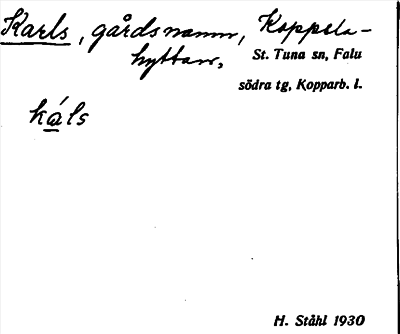 Karls, gårdsnamn, Koppsla-
hyttan,
St. Tuna sn, Falu
södra tg, Kopparb. l.
káls
H. Ståhl 1930